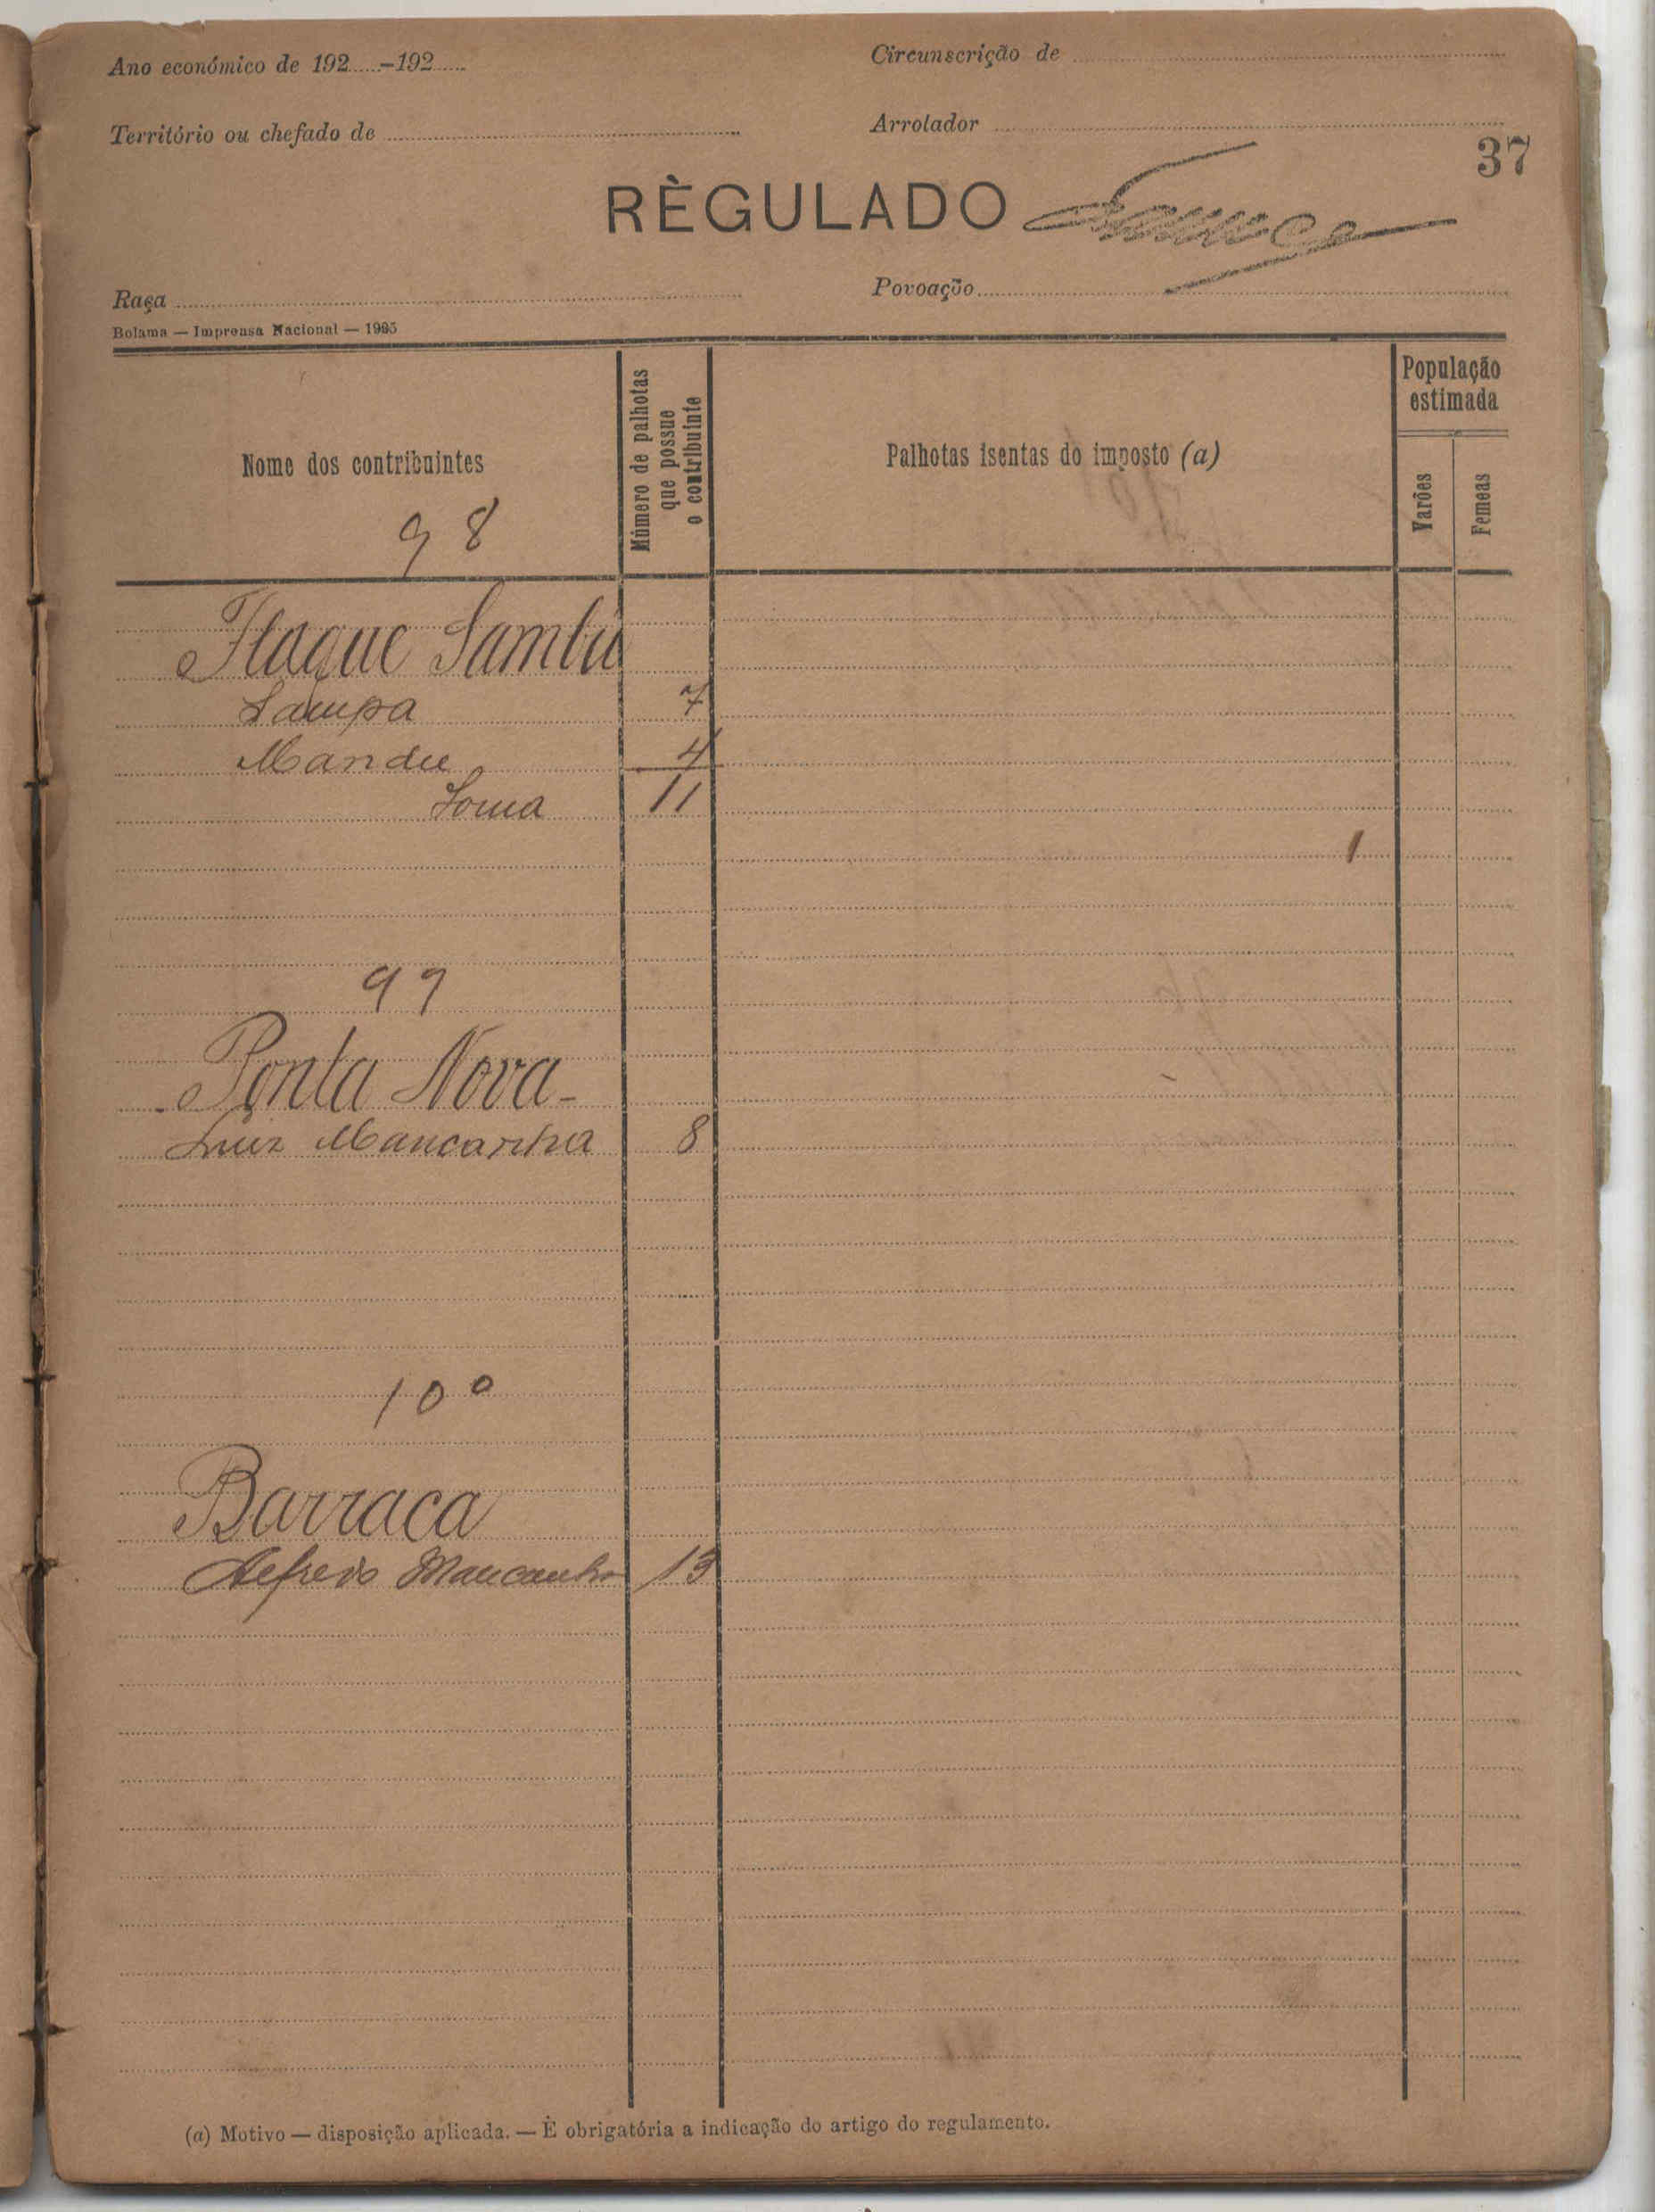 Ano económico de 192.....-192.....
Circunscrição de
Território ou chefado de
Arrolador
37
RÈGULADO
Raça
Povoação
Bolama — Imprensa Nacional — 1925
Nome dos contribuintes
Número de palhotas que possue o contribuinte
Palhotas isentas do imposto (a)
População estimada
Varões
Femeas
98
Flaque Sambú
Sampa 7
Mandu 4
Soma 11
1
99
Ponta Nova
Luiz Mancanha 8
100
Barraca
Alfredo Mancanha 13
(a) Motivo — disposição aplicada. — É obrigatória a indicação do artigo do regulamento.